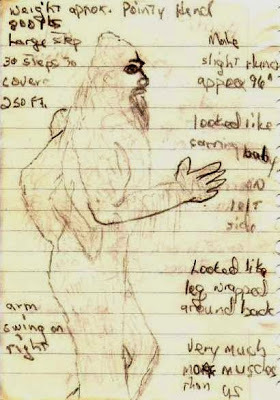 weight approx. Pointy Head
800 lbs
Large step
30 steps to
cover
250 Ft.
Male
slight
approx 9ft
looked like
baby
ON
left
side
Looked like
leg wrapped
around back
arm
swing on
right
very much
more muscles
than us